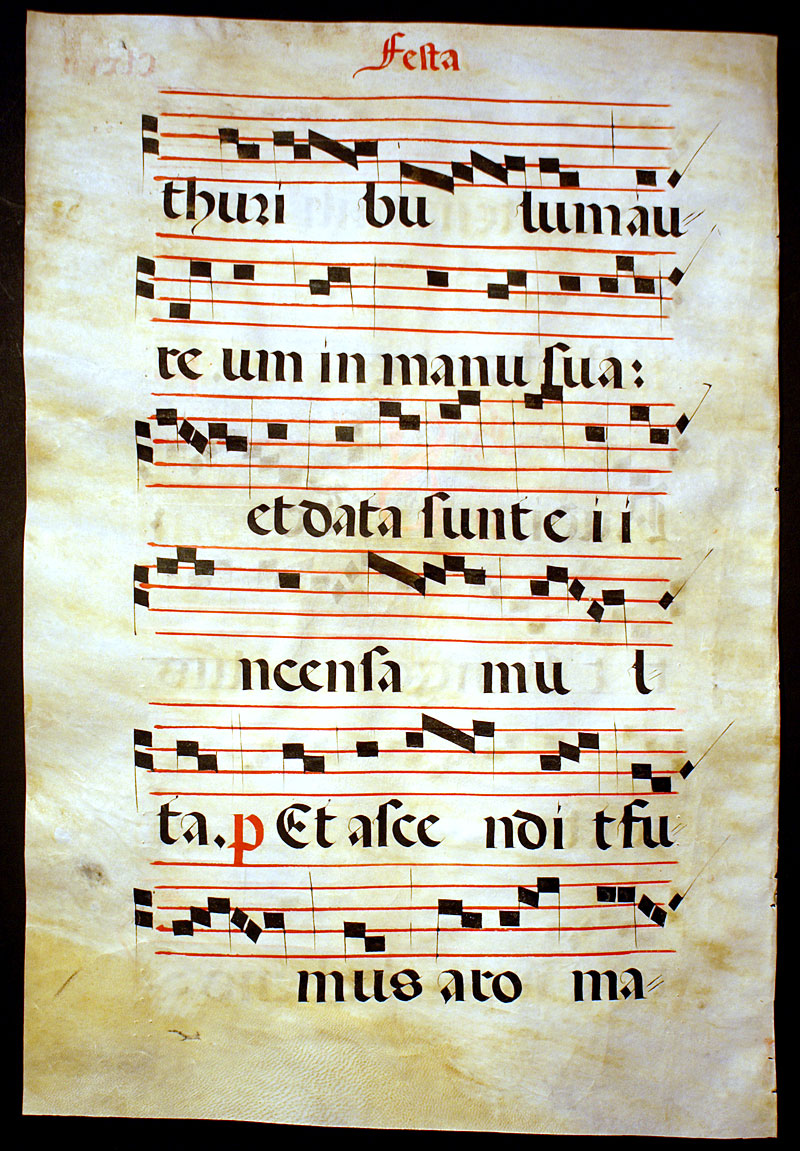 Festa
thuri bu lum au
re um in manu sua:
et data sunt e i i
ncensa mu l
ta. p Et asce ndi t fu
mus aro ma